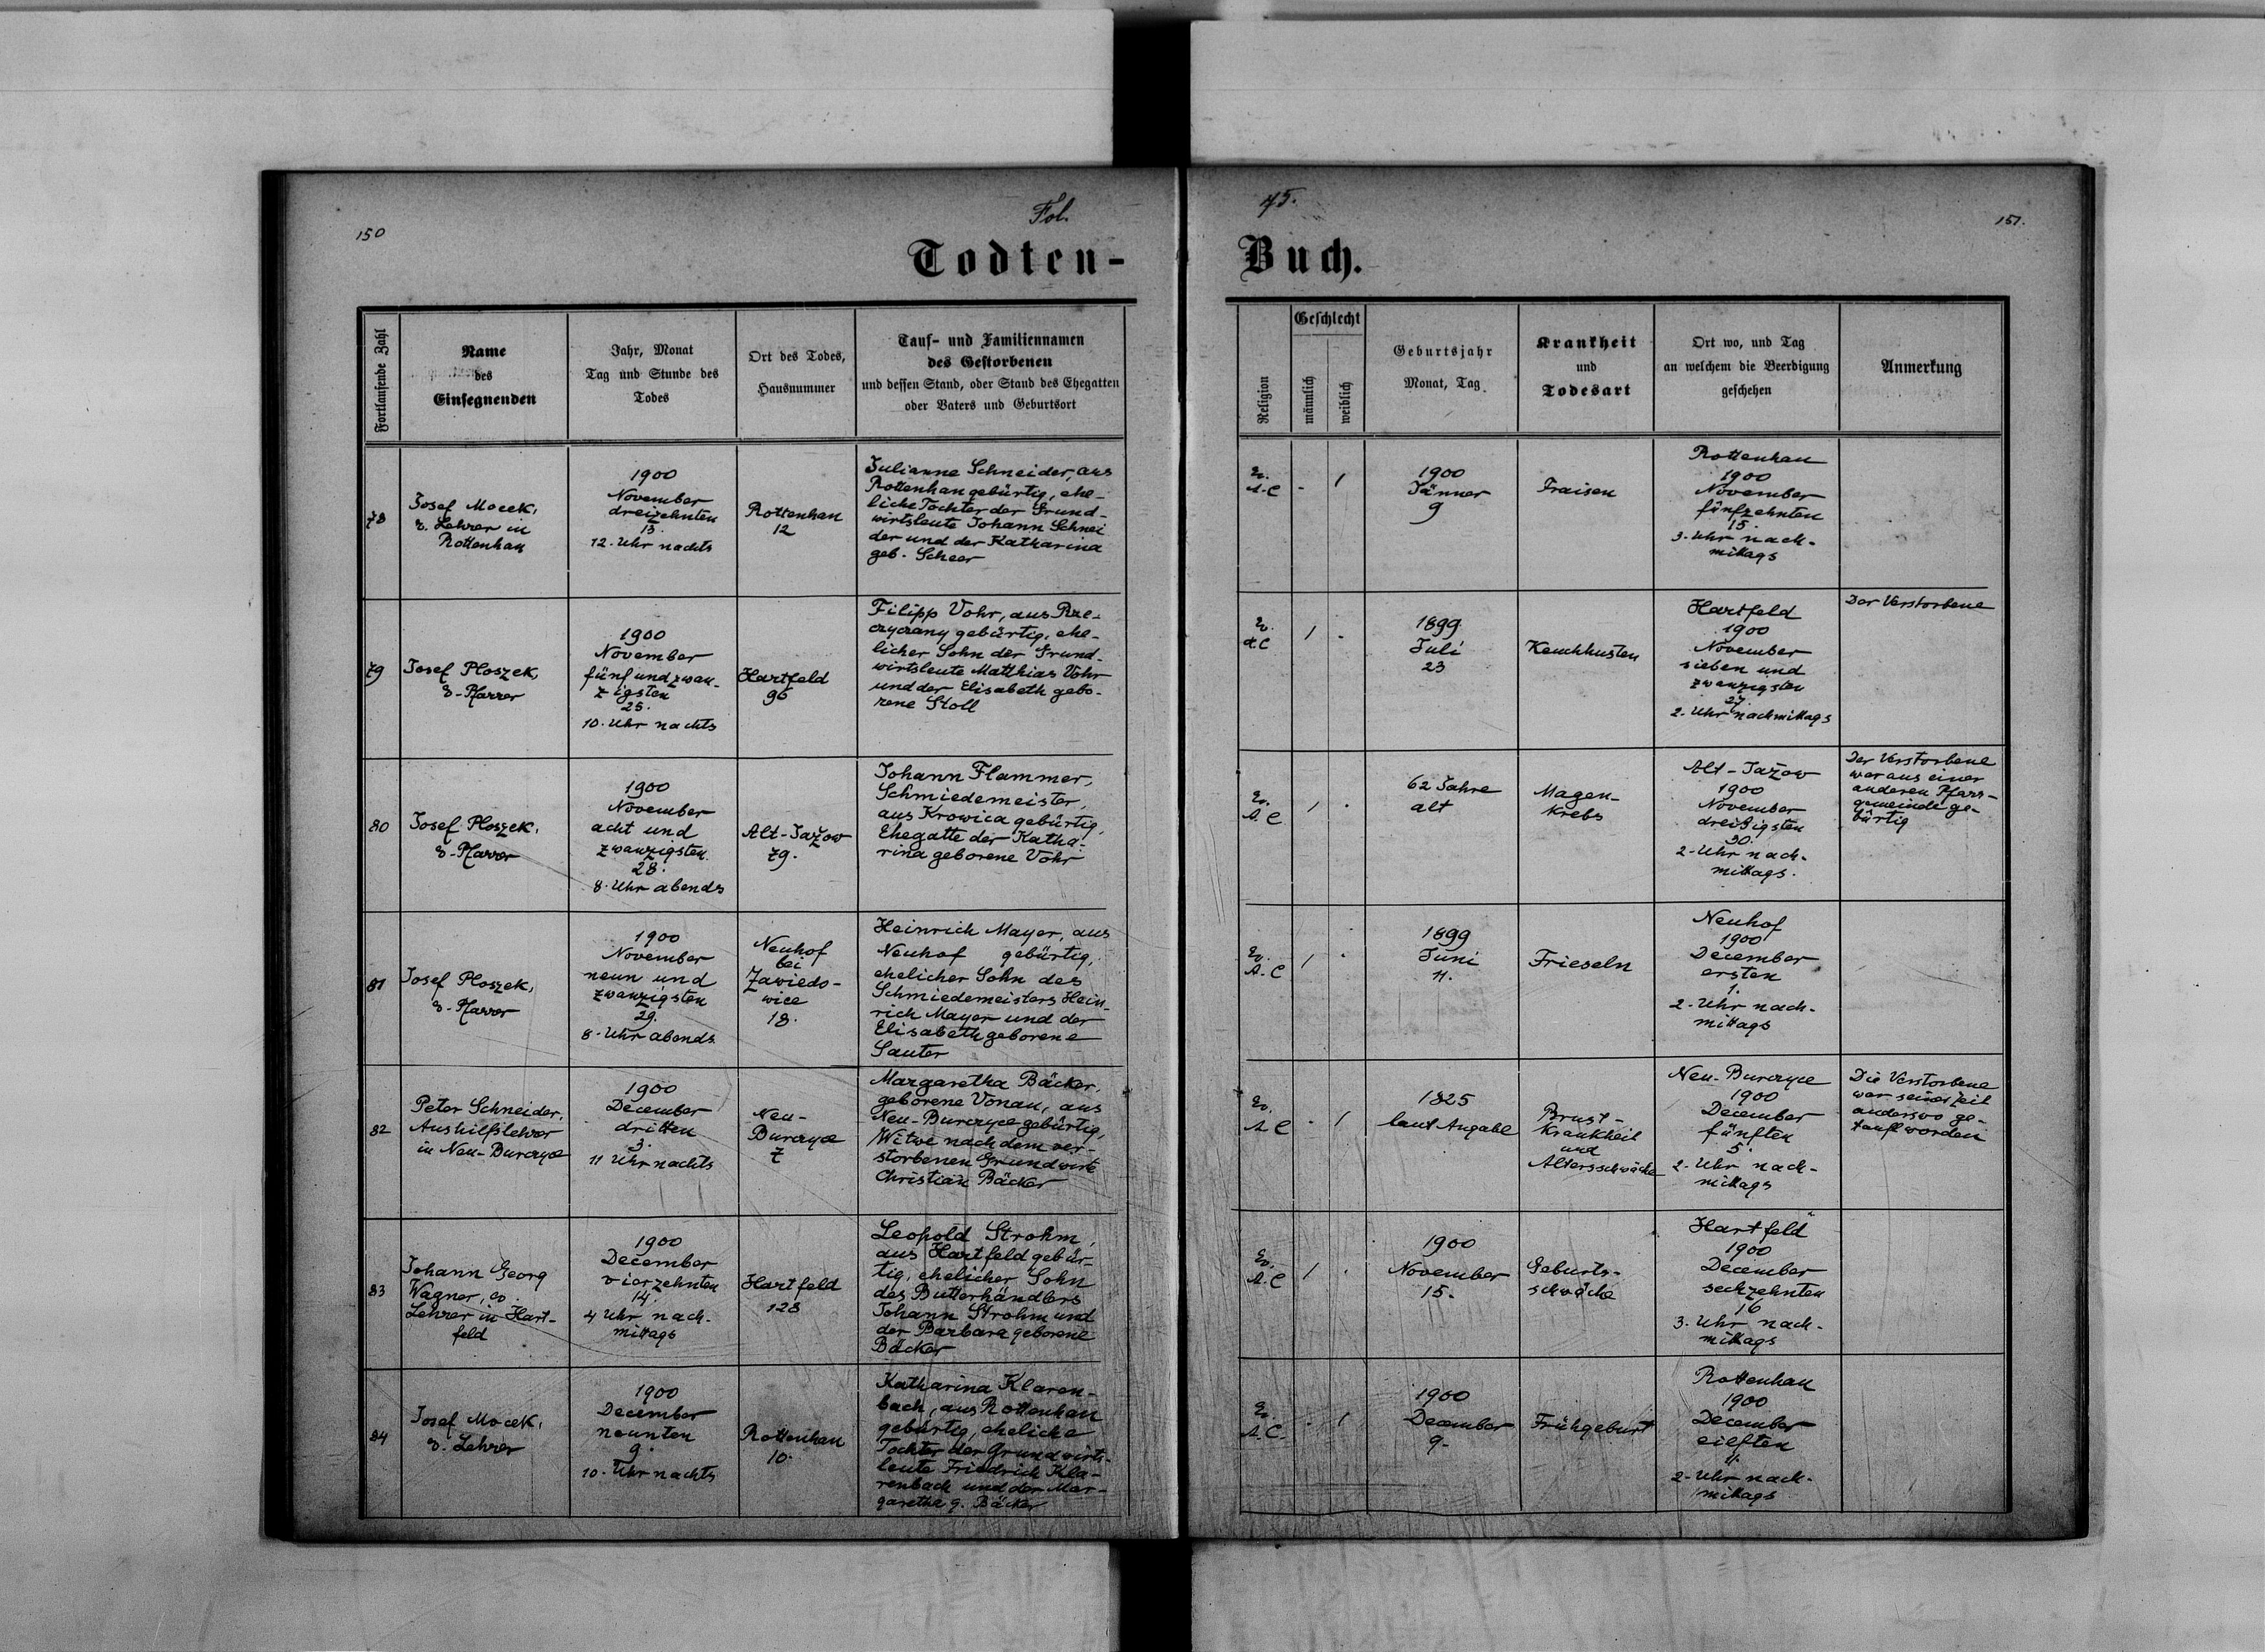 150
Fol.
75.
151.
Todten-
Buch.
Fortlaufende Zahl
Name
des
Einsegnenden
Jahr, Monat
Tag und Stunde des
Todes
Ort des Todes,
Hausnummer
Tauf- und Familiennamen
des Gestorbenen
und dessen Stand, oder Stand des Ehegatten
oder Vaters und Geburtsort
Religion
Geschlecht
männlich
weiblich
Geburtsjahr
Monat, Tag
Krankheit
und
Todesart
Ort wo, und Tag
an welchem die Beerdigung
geschehen
Anmerkung
78
Josef Mocek,
ev. Lehrer in
Rottenhan
1900
November
dreizehnten
13.
12. Uhr nachts
Rottenhan
12
Julianne Schneider, aus
Rottenhan gebürtig, ehe-
liche Tochter der Grund-
wirtsleute Johann Schnei
der und der Katharina
geb. Scheer
Ev.
A.C
- 1
1900
Jänner
9
Fraisen
Rottenhan
1900
November
fünfzehnten
15.
3. Uhr nach-
mittags
79
Josef Ploszek,
ev. Pfarrer
1900
November
fünf und zwan-
zigsten
25.
10. Uhr nachts
Hartfeld
96
Filipp Vohr, aus
gebürtig, ehe-
licher Sohn der Grund-
wirtsleute Matthias Vohr
und der Elisabeth gebo-
rene Stoll
Ev.
A.C
1 -
1899
Juli
23
Keuchhusten
Hartfeld
1900
November
sieben und
zwanzigsten
27.
2. Uhr nachmittags
Der Verstorbene
80
Josef Ploszek,
ev. Pfarrer
1900
November
acht und
zwanzigsten
28.
8. Uhr abends
Alt-Jażow
79.
Johann Flammer,
Schmiedemeister,
aus Krowica gebürtig,
Ehegatte der Katha-
rina geborene Vohr
Ev.
A.C
1 -
62 Jahre
alt
Magen-
Krebs
Alt-Jażow
1900
November
dreißigsten
30.
2. Uhr nach-
mittags.
Der Verstorbene
war aus einer
anderen Pfarr-
gemeinde ge-
bürtig
81
Josef Ploszek,
ev. Pfarrer
1900
November
neun und
zwanzigsten
29.
8. Uhr abends
Neuhof
bei
Zawiedo-
wice
18.
Heinrich Mayer, aus
Neuhof gebürtig,
ehelicher Sohn des
Schmiedemeisters Hein-
rich Mayer und der
Elisabeth geborene
Sauter
Ev.
A.C
1 -
1899
Juni
11.
Frieseln
Neuhof
1900
December
ersten
1.
2. Uhr nach-
mittags
82
Peter Schneider,
Aushilfslehrer
in Neu-Burczyce
1900
December
dritten
3.
11 Uhr nachts
Neu-
Burczyce
7
Margaretha Bäcker,
geborene Vonau, aus
Neu-Burczyce gebürtig,
Witwe nach dem ver-
storbenen Grundwirte
Christian Bäcker
Ev.
A.C
- 1
1825
laut Angabe
Brust-
Krankheit
und
Altersschwäche
Neu-Burczyce
1900
December
fünften
5.
2. Uhr nach-
mittags
Die Verstorbene
war seiner Zeit
anderswo ge-
tauft worden
83
Johann Georg
Wagner, ev.
Lehrer in Hart-
feld
1900
December
vierzehnten
14.
4 Uhr nach-
mittags
Hartfeld
128
Leopold Strohm,
aus Hartfeld gebür-
tig, ehelicher Sohn
des Butterhändlers
Johann Strohm und
der Barbara geborene
Bäcker
Ev.
A.C
1 -
1900
November
15.
Geburts-
schwäche
Hartfeld
1900
December
sechzehnten
16
3. Uhr nach-
mittags
84
Josef Mocek,
ev. Lehrer
1900
December
neunten
9.
10. Uhr nachts
Rottenhan
10.
Katharina Klaren-
bach, aus Rottenhan
gebürtig, eheliche
Tochter der Grundwirts-
leute Friedrich Kla-
renbach und der Mar-
garetha g. Bäcker
Ev.
A.C.
- 1
1900
December
9.
Frühgeburt
Rottenhan
1900
December
eilften
11.
2. Uhr nach-
mittags